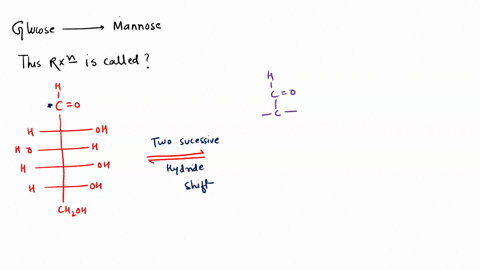 Glucose ⟶ Mannose
This Rxn is called?
H
*C=O
H OH
HO H
H OH
H OH
CH2OH
Two sucessive
Hydride
Shift
H
C=O
-C-